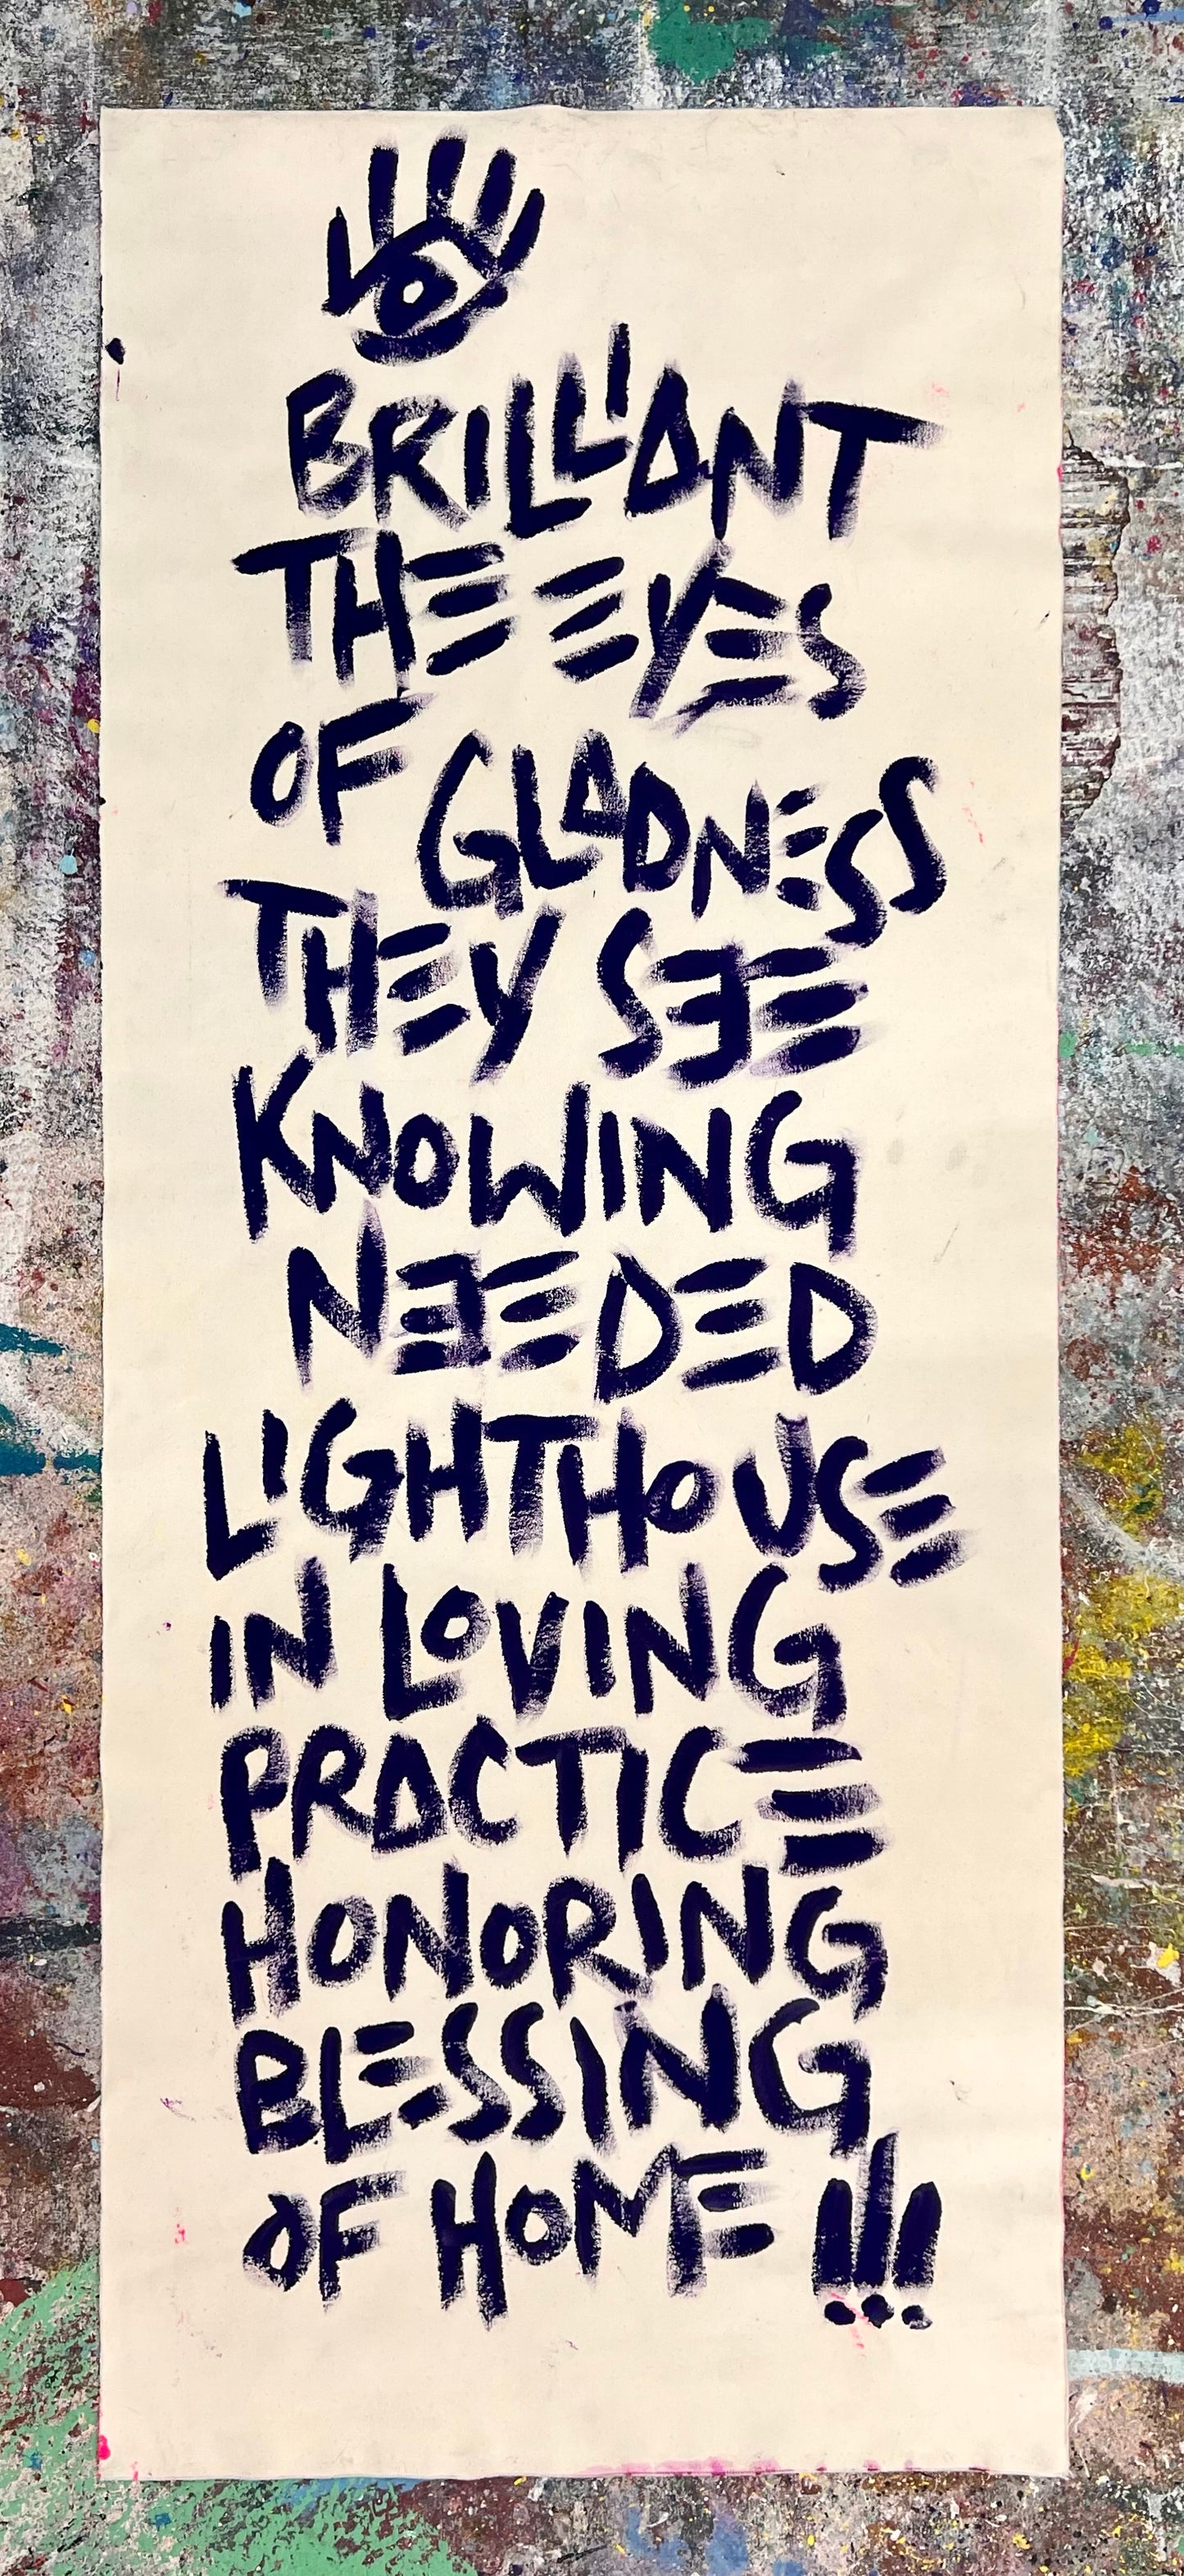 BRILLIANT
THE EYES
OF GLADNESS
THEY SEE
KNOWING
NEEDED
LIGHTHOUSE
IN LOVING
PRACTICE
HONORING
BLESSING
OF HOME!!!